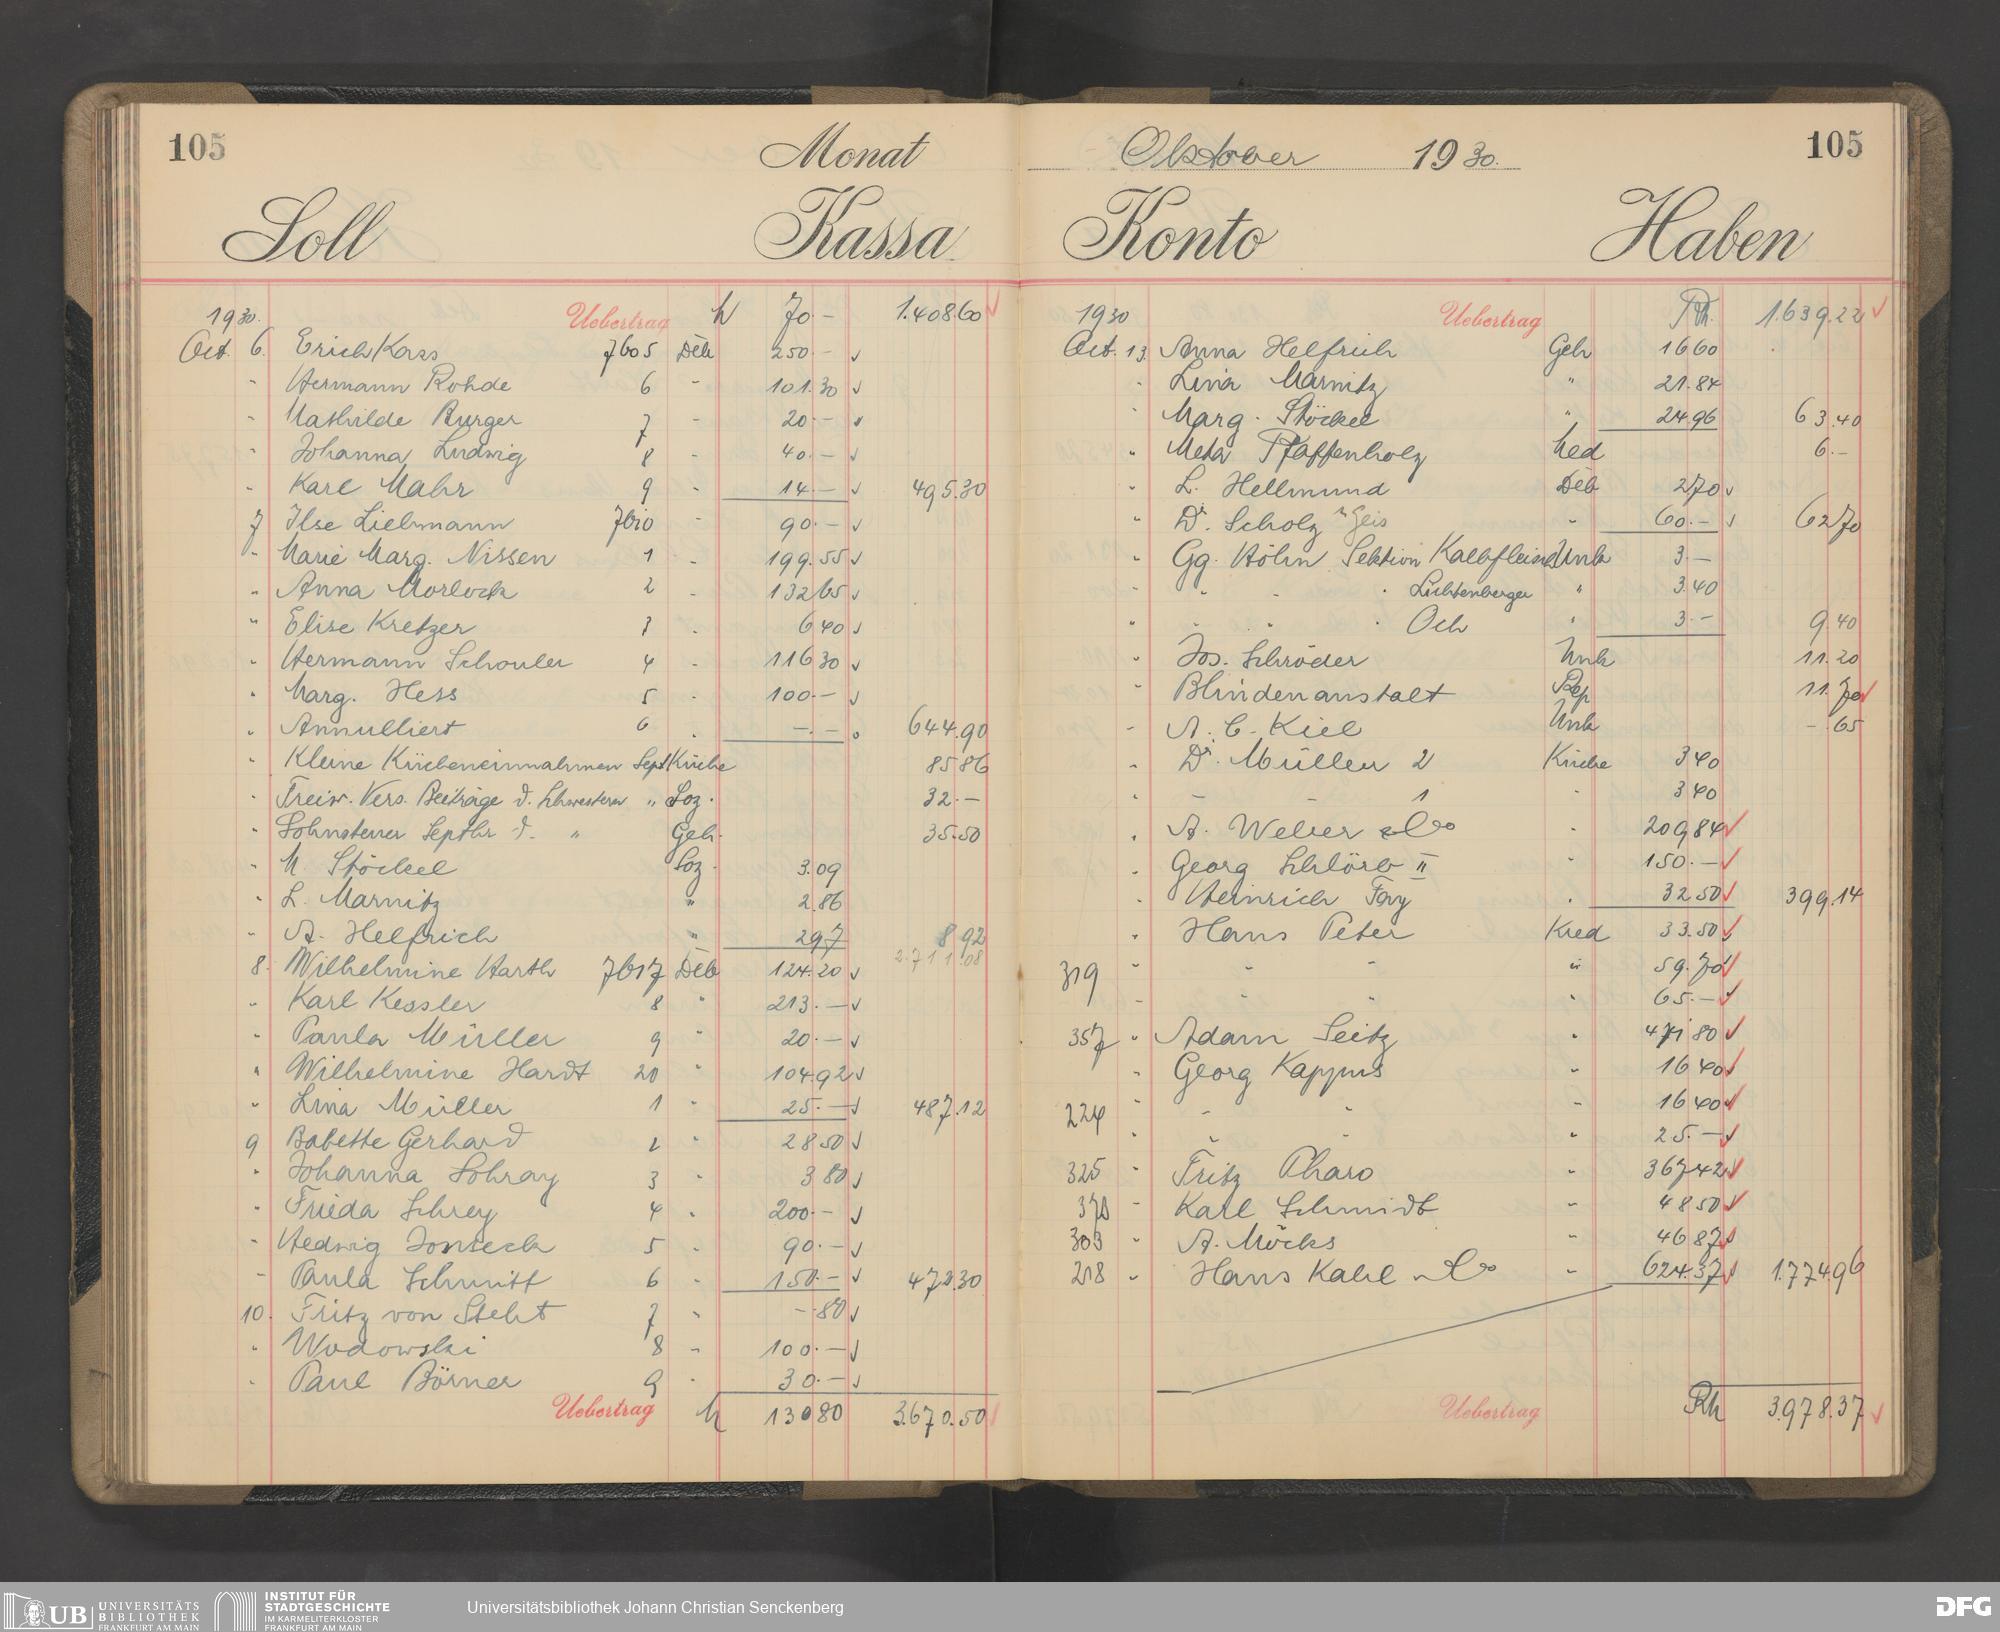 105 Monat
Soll Kassa
1930. Uebertrag 70.- 1.408.60
Oct. 6. Erich Kass 7605 Deb 250.-
" Hermann Rohde 6 " 101.30
" Mathilde Burger 7 " 20.-
" Johanna Ludwig 8 " 40.-
" Karl Mahr 9 " 14.- 495.30
7 Ilse Liebmann 7610 " 90.-
" Marie Marg. Nissen 1 " 199.55
" Anna Morlock 2 132.65
" Elise Kretzer 3 " 6.40
" Hermann Schouler 4 " 116.30
" Marg. Hess 5 " 100.-
" Annulliert 6 " -.- 644.90
" Kleine Kücheneinnahmen Sept Küche 85.86
" Freiw. Vers. Beiträge d. Schwestern " Soz. 32.-
" Lohnsteuer Septbr d. " Geh. 35.50
" M. Stöckel Soz. 3.09
" L. Marnitz " 2.86
" A. Helfrich " 2.97 8.92
2.711.08
8. Wilhelmine Harth 7617 Deb 124.20
" Karl Kessler 8 " 213.-
" Paula Müller 9 " 20.-
" Wilhelmine Hardt 20 " 104.92
" Lina Müller 1 " 25.- 487.12
9 Babette Gerhard 2 " 28.50
" Johanna Lohray 3 " 3.80
" Frieda Schrey 4 " 200.-
" Hedwig Jonseck 5 " 90.-
" Paula Schmitt 6 " 150.- 472.30
10. Fritz von Steht 7 " -.80
" Wodowski 8 " 100.-
" Paul Börner 9 " 30.-
Uebertrag 130.80 3.670.50
Oktober 1930. 105
Konto Haben
1930 Uebertrag 1.639.22
Oct. 13. Anna Helfrich Geh 16.60
" Lina Marnitz " 21.84
" Marg. Stöckel " 24.96 63.40
" Meta Pfaffenholz Med 6.-
" L. Hellmund Deb 2.70
" Dr. Scholz Geis " 60.- 62.70
" Gg. Höhn Sektion Kalbfleisch Unk 3.-
" " " " Lichtenberger " 3.40
" " " " Och " 3.- 9.40
" Jos. Schröder Unk 11.20
" Blindenanstalt Rep 11.70
" A. C. Kiel Unk -.65
" Dr. Müller 2 Küche 3.40
" " 1 " 3.40
" A. Weber & Co " 209.84
" Georg Schlörb II " 150.-
" Heinrich Fay " 32.50 399.14
" Hans Peter Kred 33.50
319 " " " " 59.70
" " " " 65.-
357 " Adam Seitz " 471.80
" Georg Kappus " 16.40
224 " " " " 16.40
" " " " 25.-
325 " Fritz Pharo " 367.42
" Karl Schmidt " 48.50
303 " A. Möcks " 46.87
218 " Hans Kahl & Co " 624.37 1.774.96
Uebertrag 3.978.37
UB UNIVERSITÄTS BIBLIOTHEK FRANKFURT AM MAIN
INSTITUT FÜR STADTGESCHICHTE IM KARMELITERKLOSTER FRANKFURT AM MAIN
Universitätsbibliothek Johann Christian Senckenberg
DFG